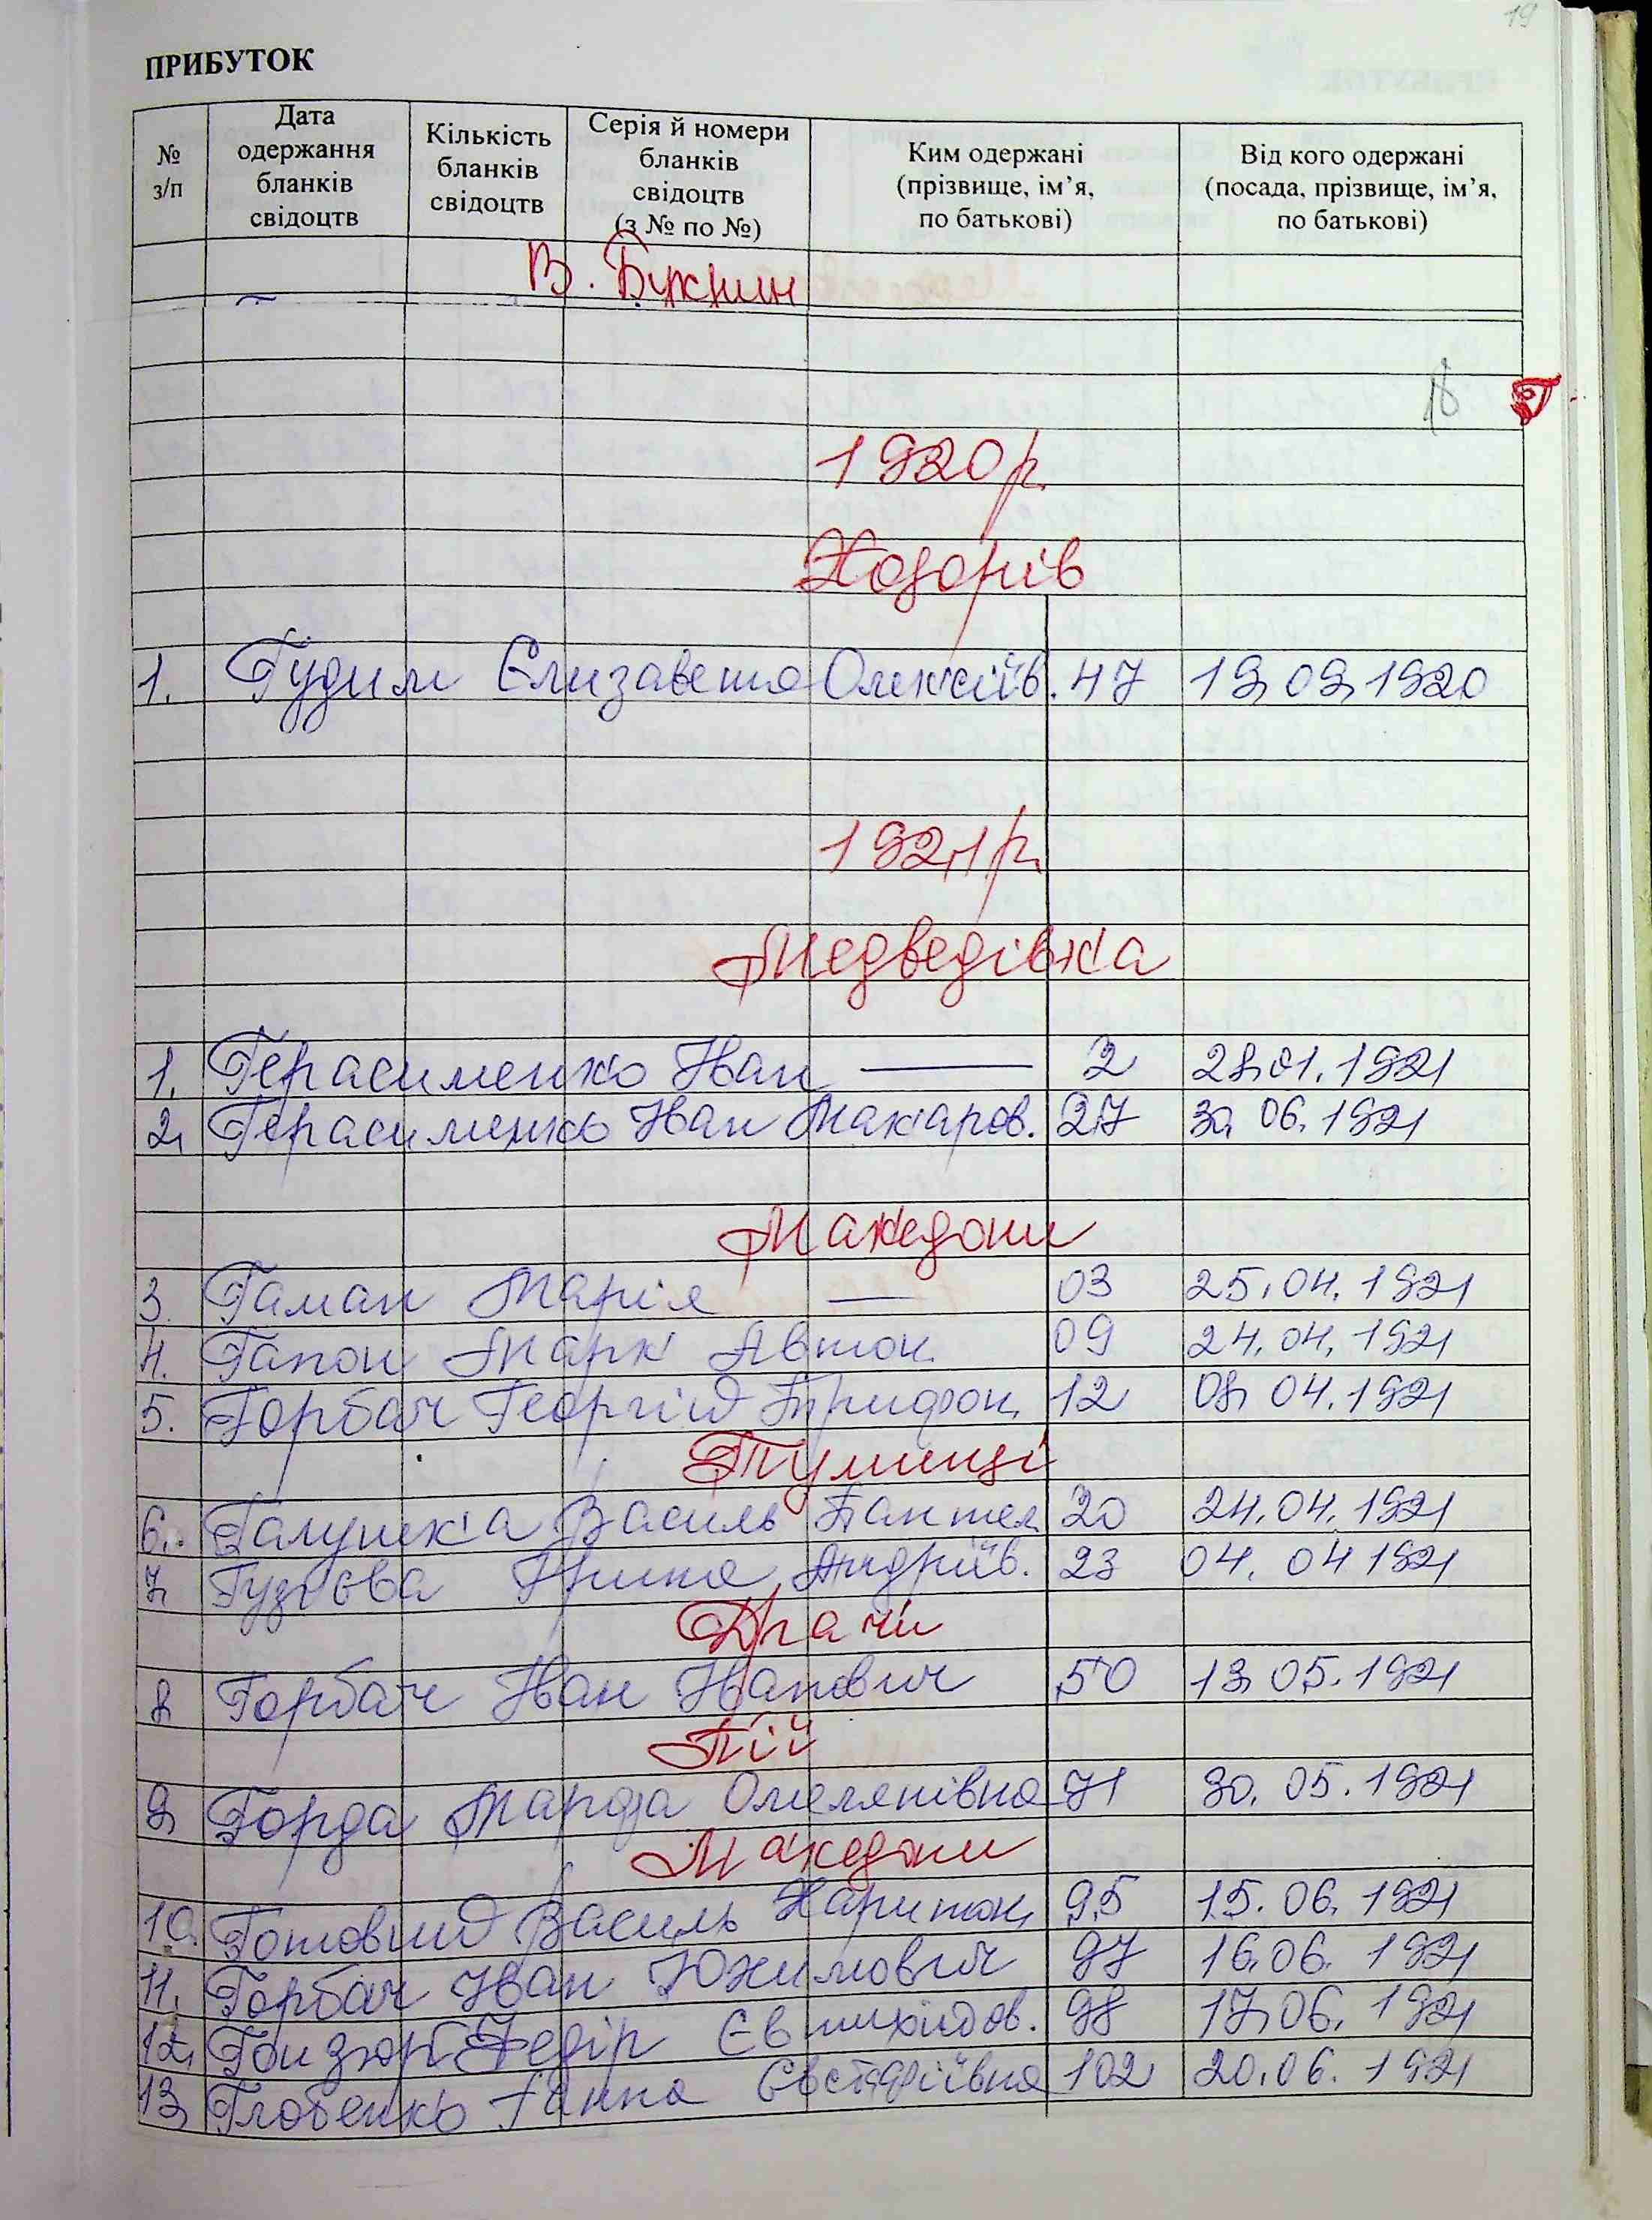 19
ПРИБУТОК
№ з/п
Дата одержання бланків свідоцтв
Кількість бланків свідоцтв
Серія й номери бланків свідоцтв (з № по №)
Ким одержані (прізвище, ім’я, по батькові)
Від кого одержані (посада, прізвище, ім’я, по батькові)
В. Букрин
18
Г
1920 р.
Ходорів
1. Гудим Єлизавета Олексіїв. 47 19.09.1920
1921 р.
Медведівка
1. Герасименко Іван — 2 28.01.1921
2. Герасименко Іван Макаров. 27 30.06.1921
Македони
3. Гаман Марія — 03 25.04.1921
4. Гапон Марк Автон. 09 24.04.1921
5. Горбач Георгій Трифон. 12 08.04.1921
Тулинці
6. Галушка Василь Пантел. 20 24.04.1921
7. Гузієва Ірина Андріїв. 23 04.04 1921
Драчі
8 Горбач Іван Іванович 50 13.05.1921
Пії
9. Горда Марфа Омелянівна 71 30.05.1921
Македони
10. Готовий Василь Харитон. 95 15.06.1921
11. Горбач Іван Юхимович 97 16.06.1921
12. Федір 98 17.06.1921
13. Глобенко Ганна Євстафіївна 102 20.06.1921